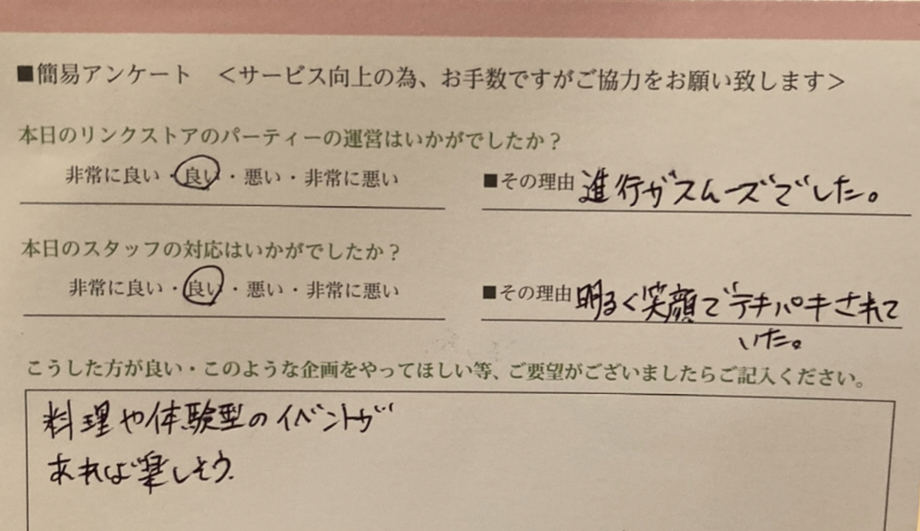 ■簡易アンケート　＜サービス向上の為、お手数ですがご協力をお願い致します＞
本日のリンクストアのパーティーの運営はいかがでしたか？
非常に良い・良い・悪い・非常に悪い　■その理由 進行がスムーズでした。
本日のスタッフの対応はいかがでしたか？
非常に良い・良い・悪い・非常に悪い　■その理由 明るく笑顔でテキパキされて
いた。
こうした方が良い・このような企画をやってほしい等、ご要望がございましたらご記入ください。
料理や体験型のイベントが
あれば楽しそう.